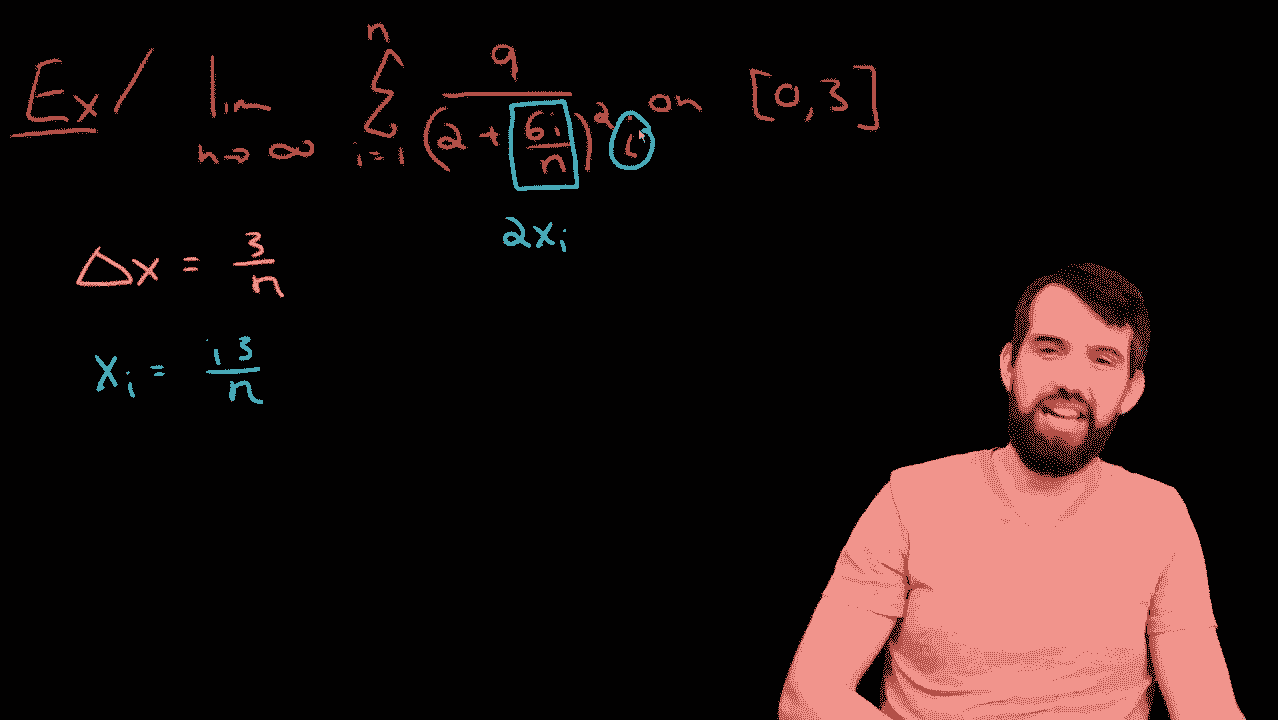 Ex/ lim n→∞ n Σ i=1 9/(2 + 6i/n)² i on [0,3]
2xᵢ
Δx = 3/n
xᵢ = i3/n